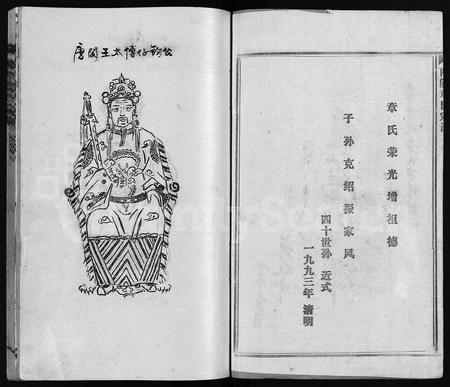 唐閩王太傅仔鈞公
章氏荣光增祖德
子孙克绍振家风
四十世孙 近式
一九九三年 清明